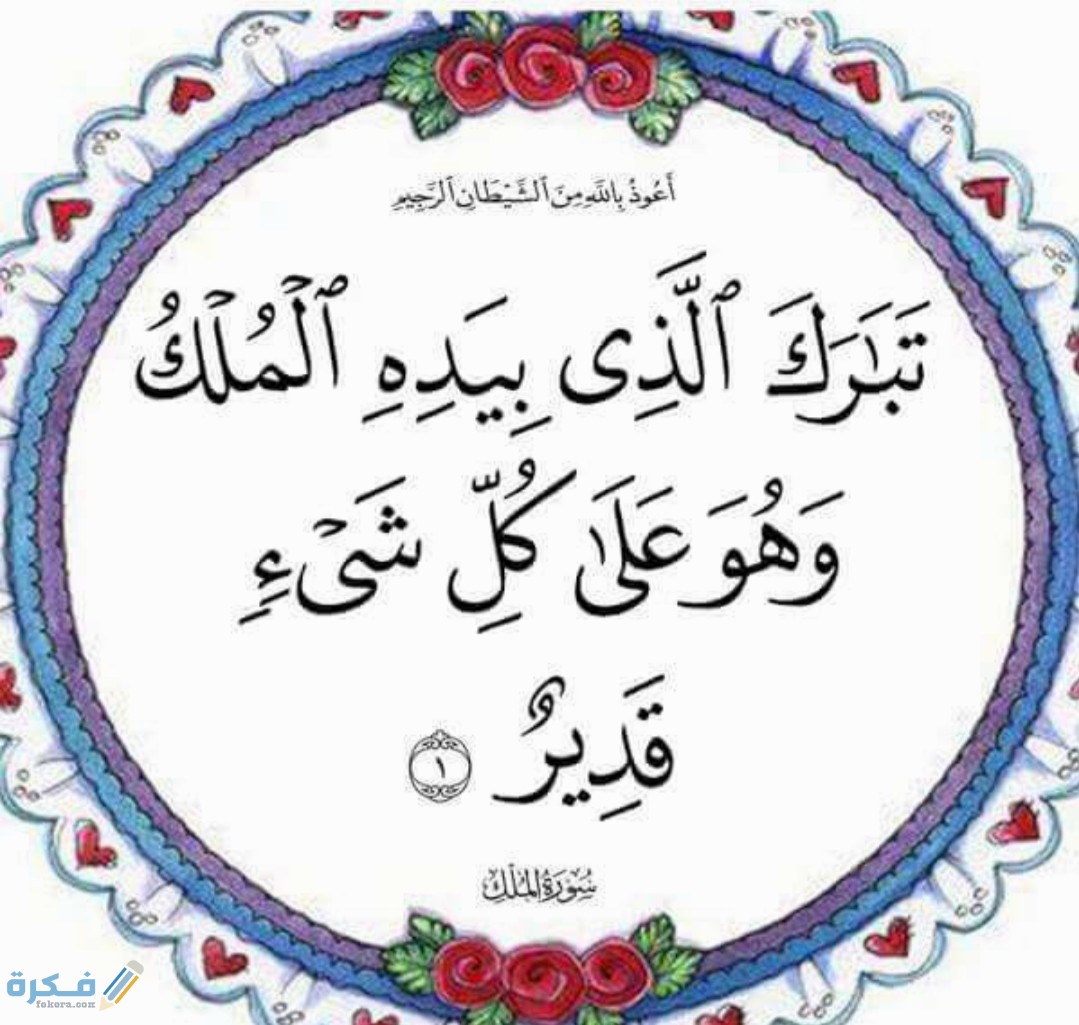 أَعُوذُ بِاللَّهِ مِنَ ٱلشَّيْطَانِ ٱلرَّجِيمِ
تَبَٰرَكَ ٱلَّذِى بِيَدِهِ ٱلْمُلْكُ
وَهُوَ عَلَىٰ كُلِّ شَىْءٍ
قَدِيرٌ ١
سُورَةُ المُلْكِ
فكرة
fokora.com